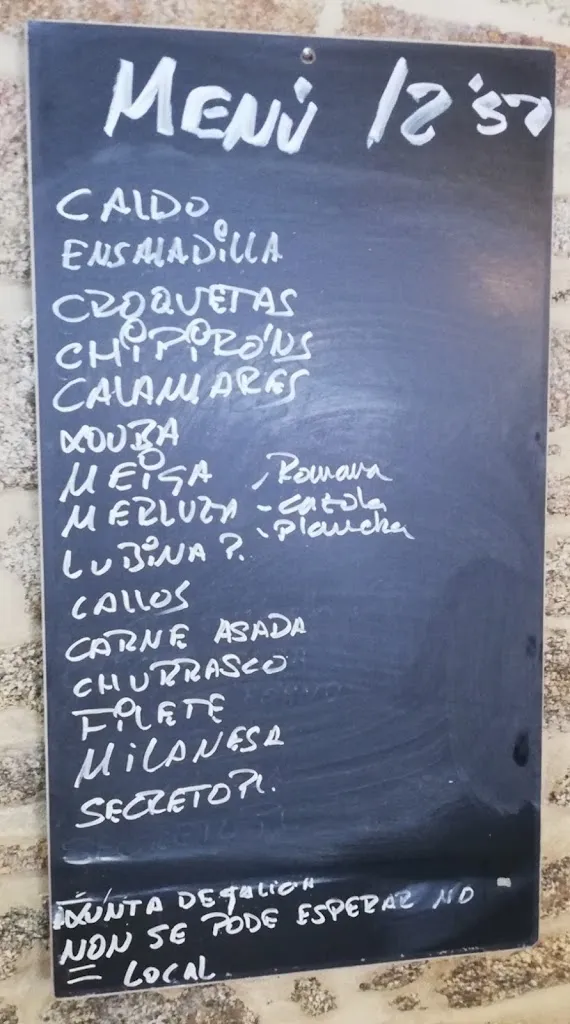 MENÚ 12'50
CALDO
ENSALADILLA
CROQUETAS
CHIPIRÓNS
CALAMARES
XOUBA
MEIGA
MERLUZA - Romana - Cazola - Plancha
LUBINA P.
CALLOS
CARNE ASADA
CHURRASCO
FILETE
MILANESA
SECRETO PL.
XUNTA DE GALICIA
NON SE PODE ESPERAR NO
= LOCAL